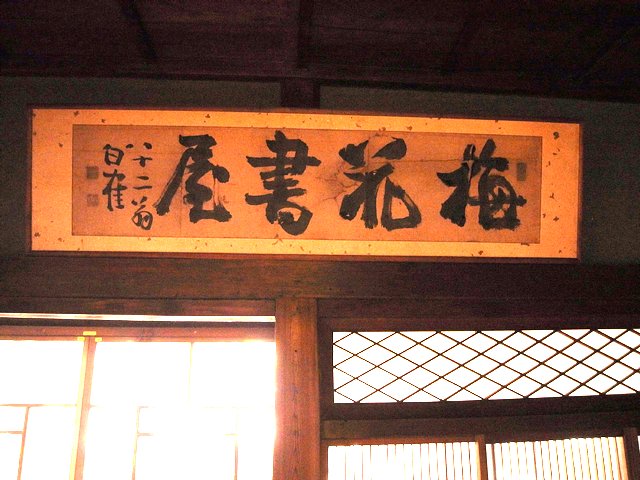 梅花書屋
八十二翁
白雀